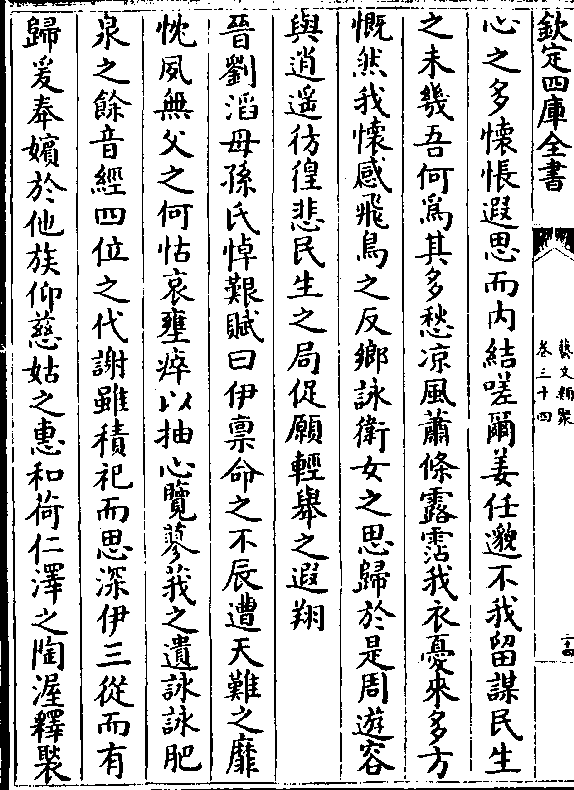 欽定四庫全書
藝文類聚
卷三十四
二十四
心之多懷悵遐思而内結嗟爾姜任邈不我留謀民生
之未幾吾何為其多愁凉風蕭條露霑我衣憂來多方
慨然我懷感飛鳥之反鄉詠衛女之思歸於是周遊容
與逍遥彷徨悲民生之局促願輕舉之遐翔
晉劉滔母孫氏悼艱賦曰伊禀命之不辰遭天難之靡
忱夙無父之何怙哀壅瘁以抽心覽蓼莪之遺詠詠肥
泉之餘音經四位之代謝雖積祀而思深伊三從而有
歸爰奉嬪於他族仰慈姑之惠和荷仁澤之陶渥釋褧